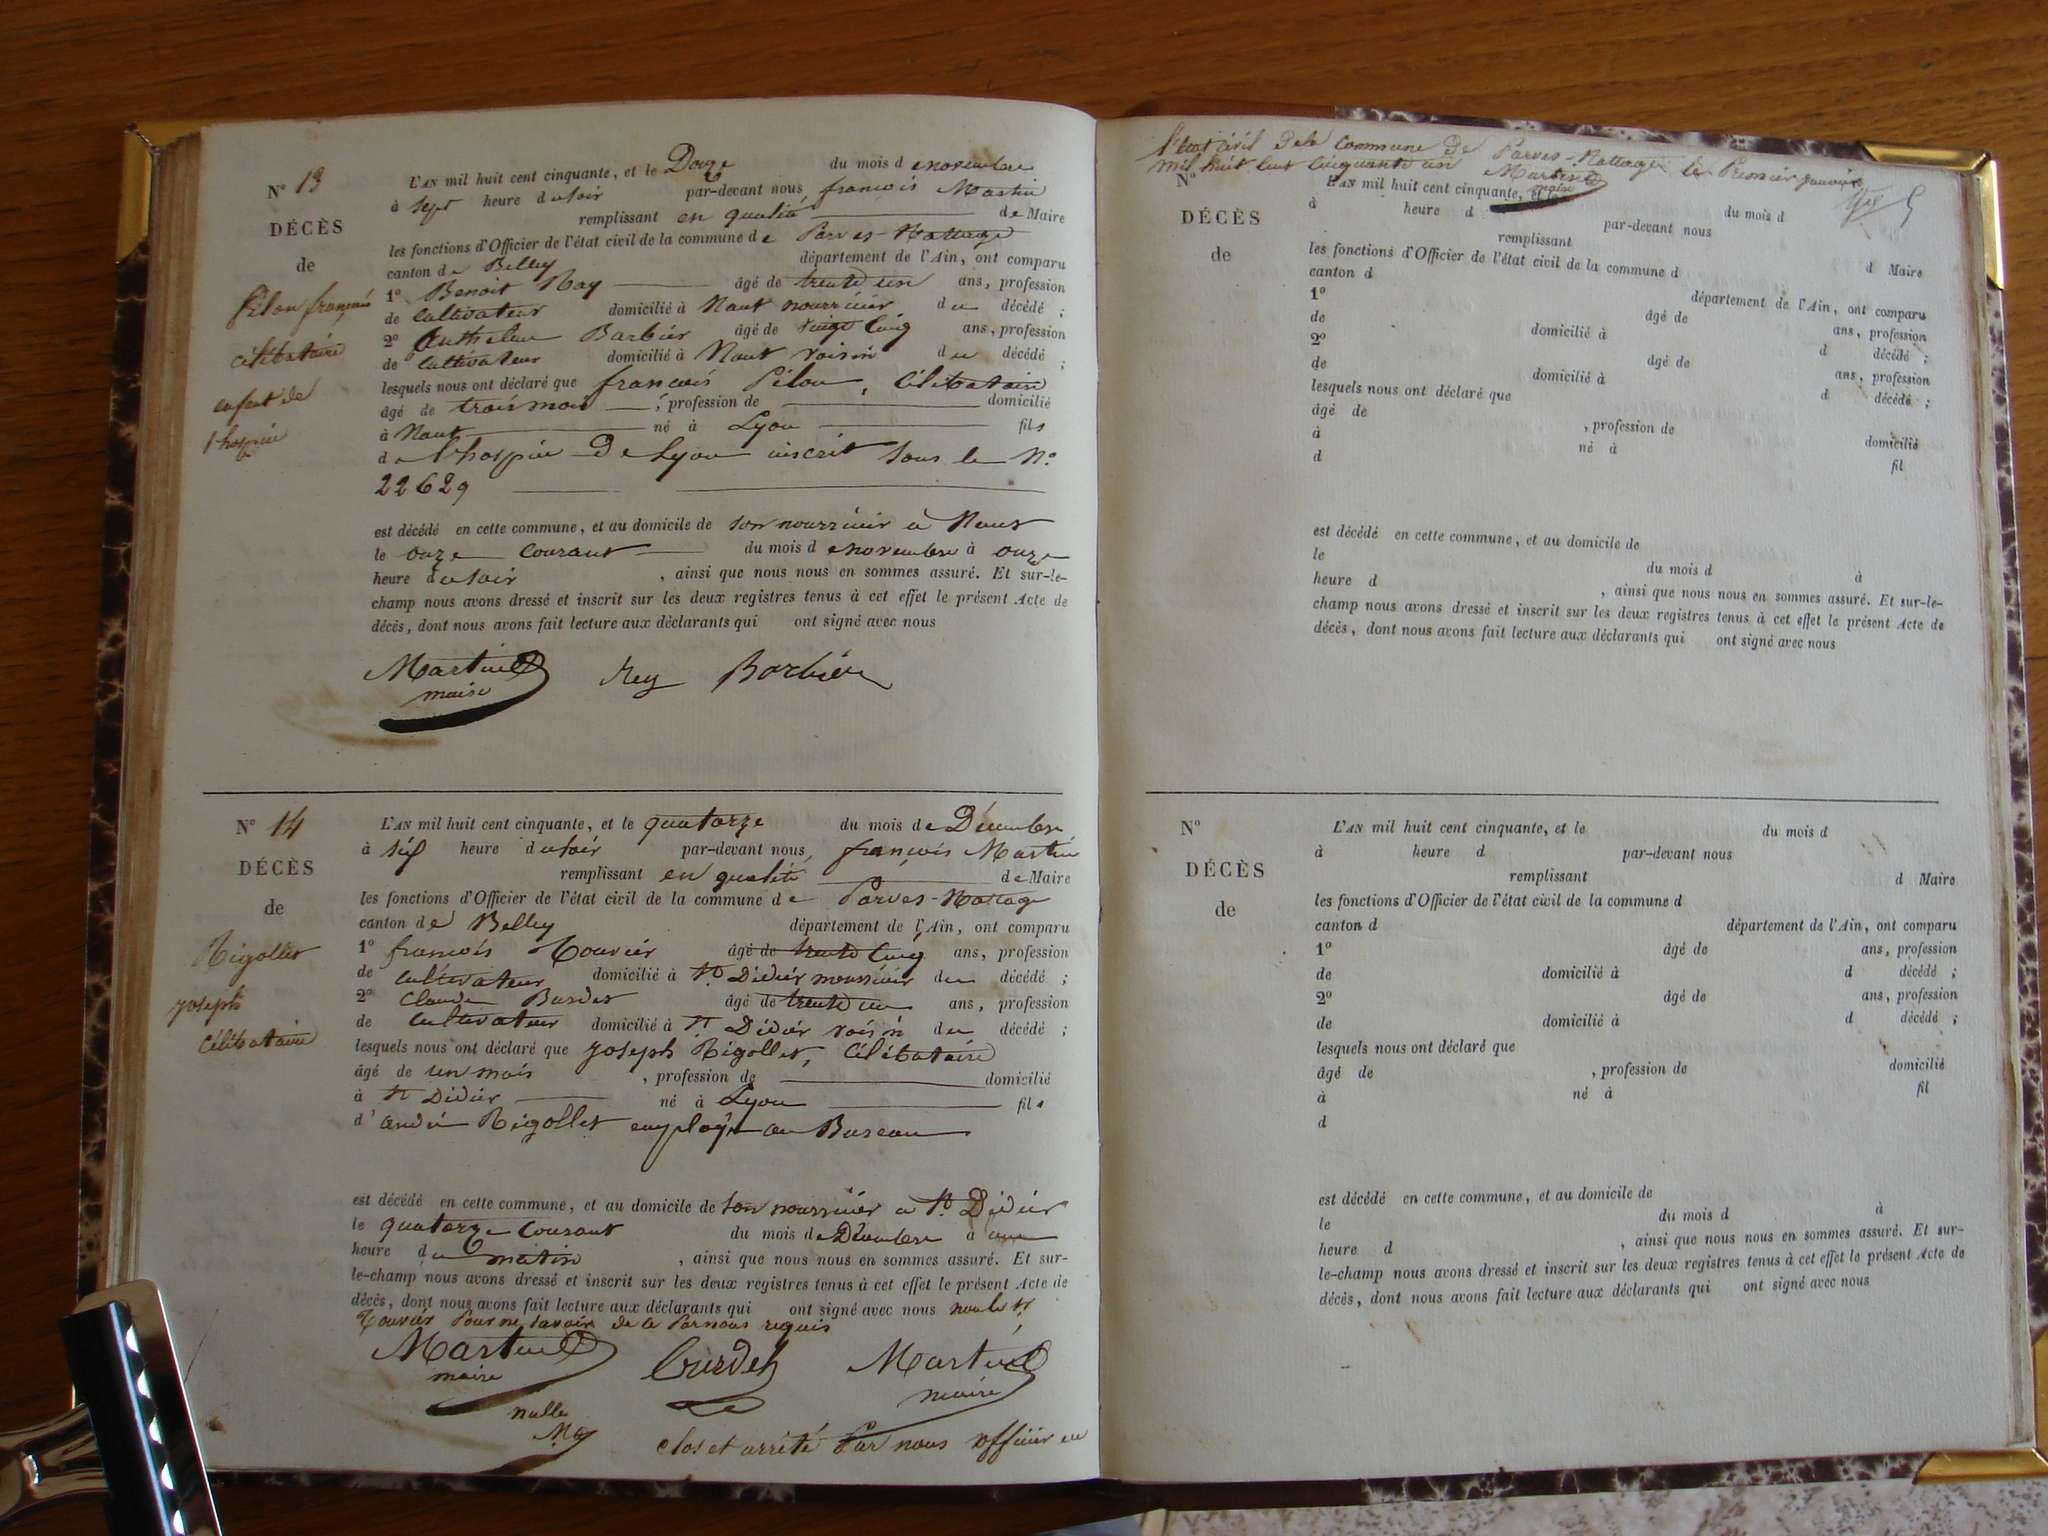 N° 13
DÉCÈS
de
Pilon françois
célibataire
enfant de
l'hospice
L'AN mil huit cent cinquante, et le Douze du mois de novembre
à sept heure du soir par-devant nous françois Martin
remplissant en qualité de Maire
les fonctions d'Officier de l'état civil de la commune de Parves-Nattage
canton de Belley département de l'Ain, ont comparu
1° Benoit Ray âgé de trente un ans, profession
de Cultivateur domicilié à Nant nourricier du décédé ;
2° Anthelme Barbier âgé de vingt cinq ans, profession
de Cultivateur domicilié à Nant voisin du décédé ;
lesquels nous ont déclaré que françois Pilon, Célibataire
âgé de trois mois , profession de domicilié
à Nant né à Lyon fils
de l'hospice De Lyon inscrit sous le N°
22629
est décédé en cette commune, et au domicile de son nourricier à Nant
le onze courant du mois de novembre à onze
heure du soir , ainsi que nous nous en sommes assuré. Et sur-le-
champ nous avons dressé et inscrit sur les deux registres tenus à cet effet le présent Acte de
décès, dont nous avons fait lecture aux déclarants qui ont signé avec nous
Martin Rey Barbier
maire
N° 14
DÉCÈS
de
Rigollet
joseph
Célibataire
L'AN mil huit cent cinquante, et le quatorze du mois de Décembre
à six heure du soir par-devant nous françois Martin
remplissant en qualité de Maire
les fonctions d'Officier de l'état civil de la commune de Parves-Nattage
canton de Belley département de l'Ain, ont comparu
1° françois âgé de trente cinq ans, profession
de Cultivateur domicilié à St Didier nourricier du décédé ;
2° Claude Burdet âgé de trente un ans, profession
de Cultivateur domicilié à St Didier voisin du décédé ;
lesquels nous ont déclaré que joseph Rigollet, Célibataire
âgé de un mois , profession de domicilié
à St Didier né à Lyon fils
d'andré Rigollet employé au Bureau
est décédé en cette commune, et au domicile de son nourricier à St Didier
le quatorze Courant du mois de Décembre à une
heure du matin , ainsi que nous nous en sommes assuré. Et sur-
le-champ nous avons dressé et inscrit sur les deux registres tenus à cet effet le présent Acte de
décès, dont nous avons fait lecture aux déclarants qui ont signé avec nous
Pour ne savoir de ce Par nous requis
Martin Burdet Martin
maire maire
nulle
clos et arrêté Par nous officier de
l'état civil De la Commune de Parves-Nattage le Premier janvier
mil huit cent cinquante un Martin
maire
N°
DÉCÈS
de
L'AN mil huit cent cinquante, et le du mois d
à heure d par-devant nous
remplissant d Maire
les fonctions d'Officier de l'état civil de la commune d
canton d département de l'Ain, ont comparu
1° âgé de ans, profession
de domicilié à d décédé ;
2° âgé de ans, profession
de domicilié à d décédé ;
lesquels nous ont déclaré que
âgé de , profession de domicilié
à né à fil
d
est décédé en cette commune, et au domicile de
le du mois d à
heure d , ainsi que nous nous en sommes assuré. Et sur-le-
champ nous avons dressé et inscrit sur les deux registres tenus à cet effet le présent Acte de
décès, dont nous avons fait lecture aux déclarants qui ont signé avec nous
N°
DÉCÈS
de
L'AN mil huit cent cinquante, et le du mois d
à heure d par-devant nous
remplissant d Maire
les fonctions d'Officier de l'état civil de la commune d
canton d département de l'Ain, ont comparu
1° âgé de ans, profession
de domicilié à d décédé ;
2° âgé de ans, profession
de domicilié à d décédé ;
lesquels nous ont déclaré que
âgé de , profession de domicilié
à né à fil
d
est décédé en cette commune, et au domicile de
le du mois d à
heure d , ainsi que nous nous en sommes assuré. Et sur-
le-champ nous avons dressé et inscrit sur les deux registres tenus à cet effet le présent Acte de
décès, dont nous avons fait lecture aux déclarants qui ont signé avec nous